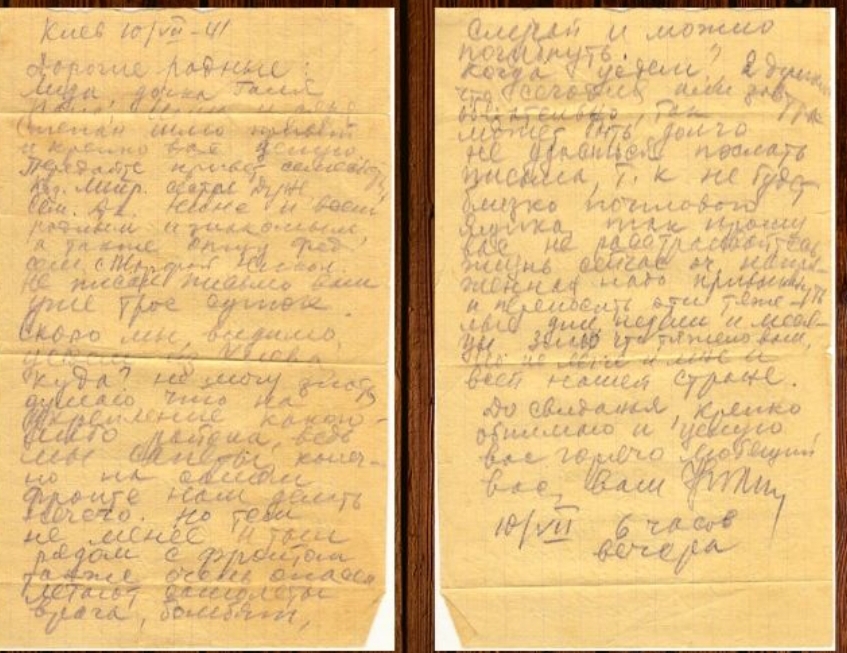 Киев 10/VII-41
Дорогие родные:
Лида дочка Галя
шлю привет
и крепко вас целую
Передайте привет семейству
сестре
сем. и всем
родным и знакомым
а также отцу
сем. с
не писал письмо вам
уже трое суток.
Скоро мы, видимо,
уедем из Киева
куда? не могу знать
думаю что на
укрепление какого-
либо района, ведь
мы саперы, конеч-
но на самом
фронте нам делать
нечего. Но тем
не менее и там
рядом с фронтом
также очень опасн
летают самолеты
врага, бомбят,
Случай и можно
погибнуть.
Когда уедем? Я думаю
что сегодня или завтра
обязательно, так
может быть долго
не удасться послать
письма, т. к не будет
близко почтового
ящика, так прошу
вас не расстраивайтесь
жизнь сейчас оч. напря-
женная надо привыкнуть
и переносить эти тяже-
лые дни, недели и меся-
цы знаю что тяжело вам,
но не легче и мне и
всей нашей стране.
До свиданья, крепко
обнимаю и целую
вас горячо любящий
вас, Ваш
10/VII 6 часов
вечера